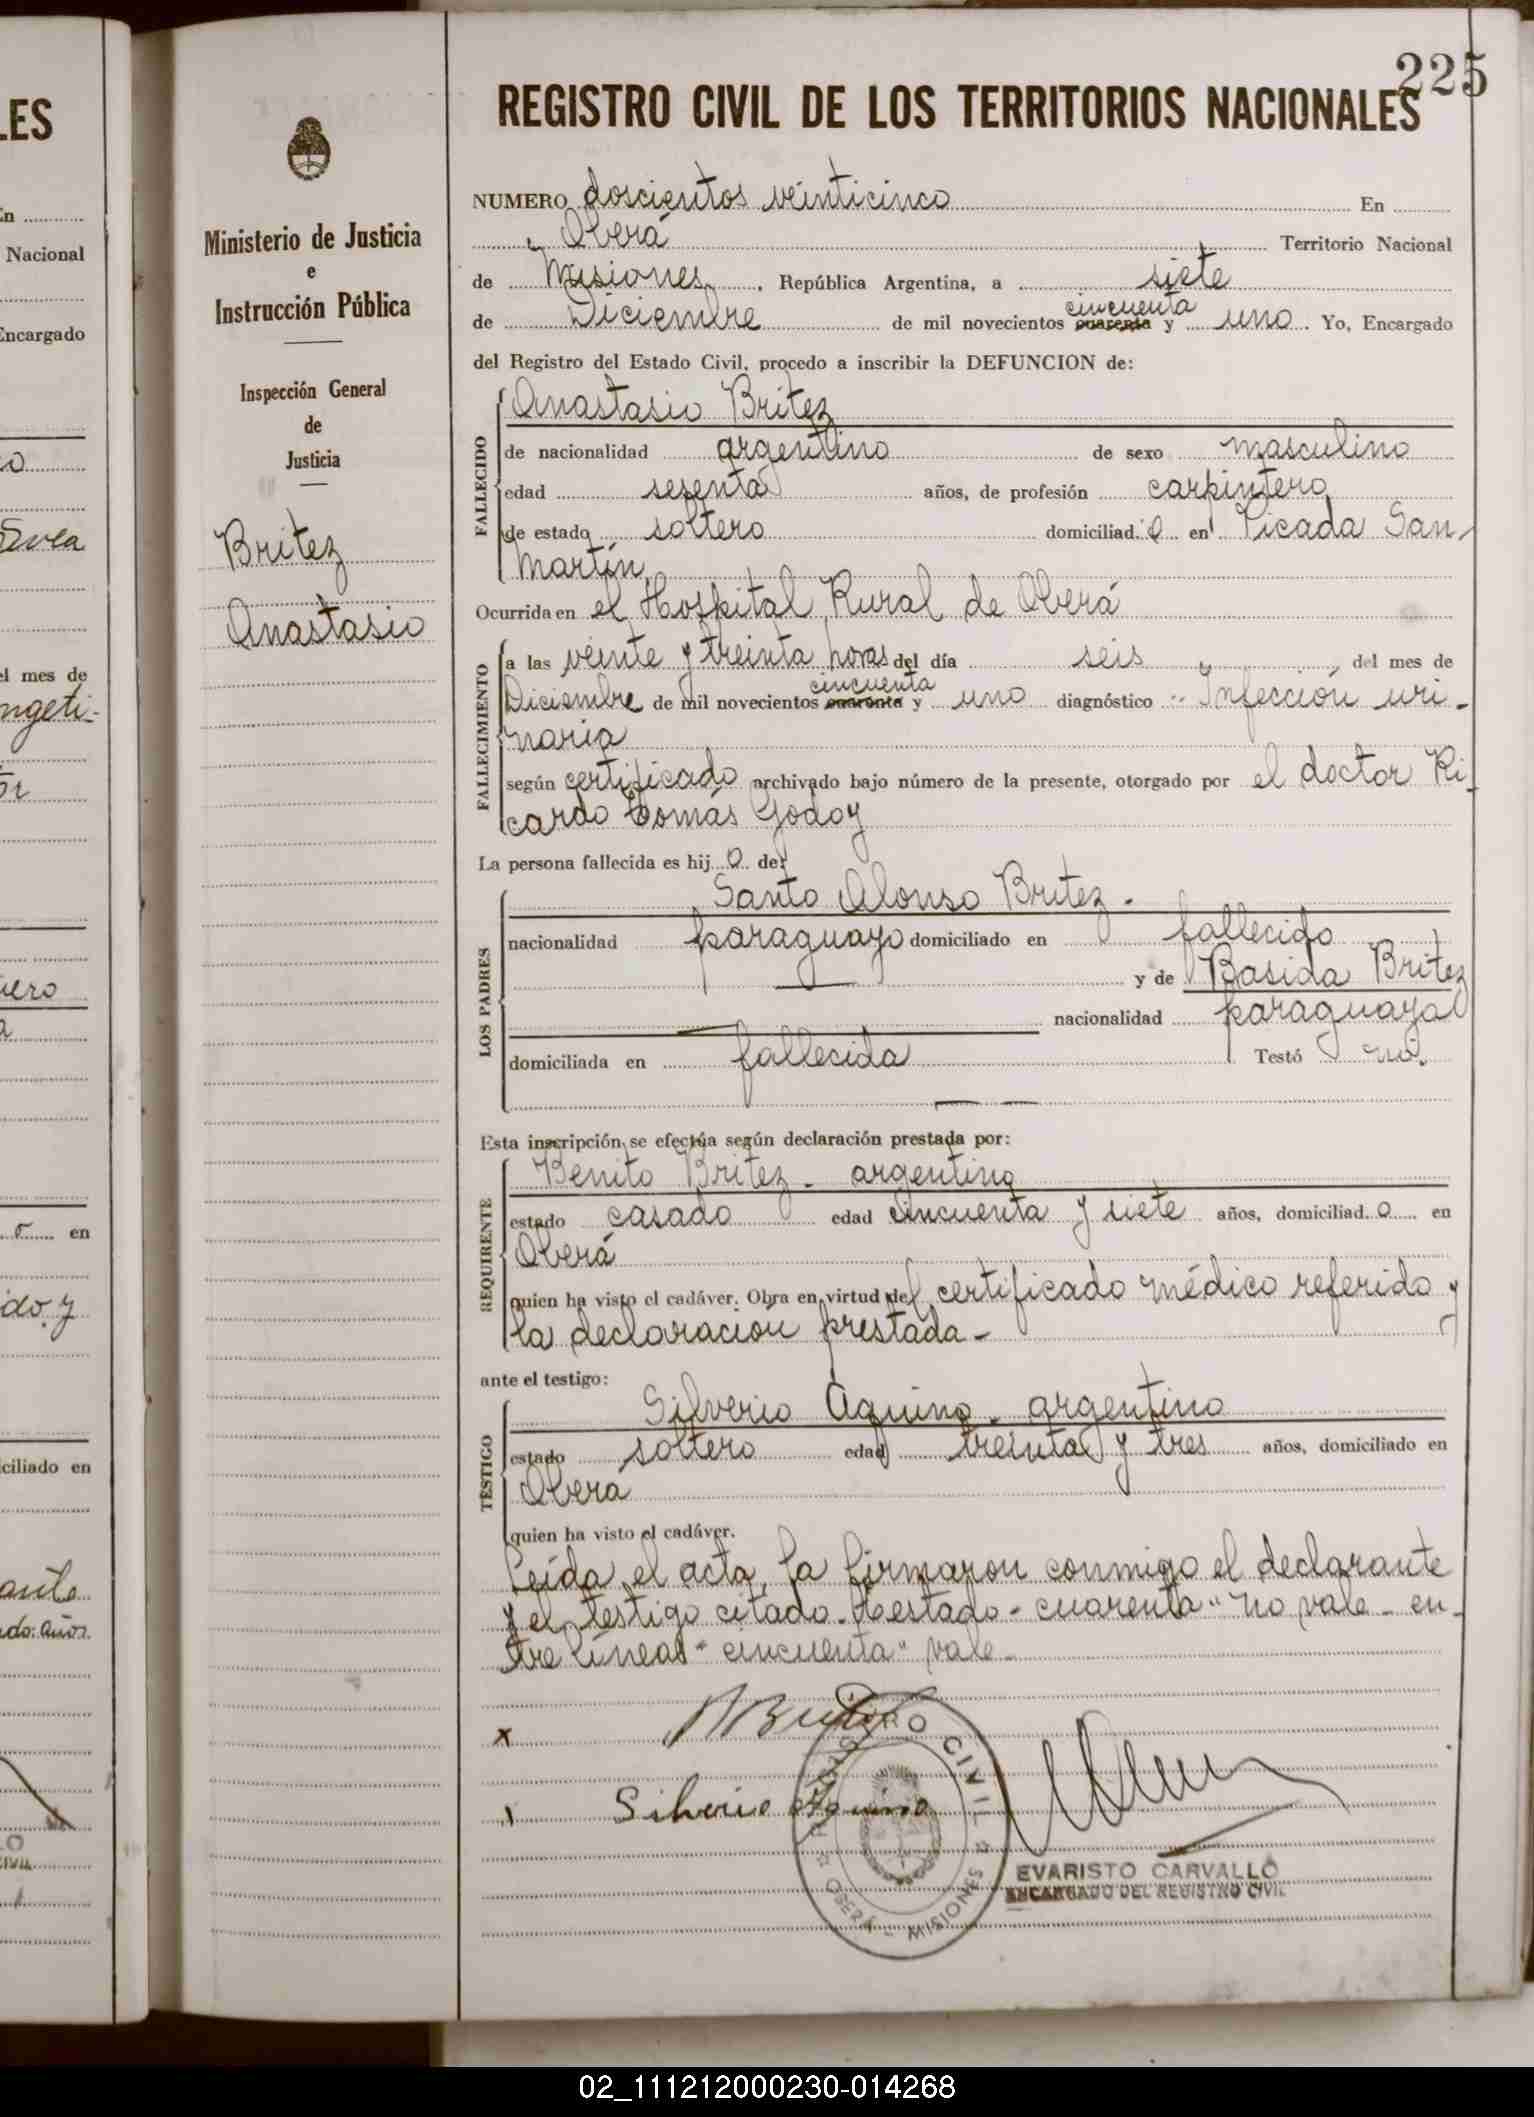 225
REGISTRO CIVIL DE LOS TERRITORIOS NACIONALES
Ministerio de Justicia
e
Instrucción Pública
Inspección General
de
Justicia
Britez
Anastasio
NUMERO doscientos veinticinco En
Oberá Territorio Nacional
de Misiones, República Argentina, a siete
de Diciembre de mil novecientos cuarenta cincuenta y uno. Yo, Encargado
del Registro del Estado Civil, procedo a inscribir la DEFUNCION de:
FALLECIDO
Anastasio Britez
de nacionalidad argentino de sexo masculino
edad sesenta años, de profesión carpintero
de estado soltero domiciliad o en Picada San
Martín
Ocurrida en el Hospital Rural de Oberá
FALLECIMIENTO
a las veinte y treinta horas del día seis del mes de
Diciembre de mil novecientos cuarenta cincuenta y uno diagnóstico Infección uri-
naria
según certificado archivado bajo número de la presente, otorgado por el doctor Ri-
cardo Tomás Godoy
La persona fallecida es hij o de:
LOS PADRES
Santo Alonso Britez.
nacionalidad paraguayo domiciliado en fallecido
y de Basida Britez
nacionalidad paraguaya
domiciliada en fallecida Testó no.
Esta inscripción se efectúa según declaración prestada por:
REQUIRENTE
Benito Britez - argentino
estado casado edad cincuenta y siete años, domiciliad o en
Oberá
quien ha visto el cadáver. Obra en virtud del certificado médico referido y
la declaración prestada -
ante el testigo:
TESTIGO
Silverio Aquino - argentino
estado soltero edad treinta y tres años, domiciliado en
Oberá
quien ha visto el cadáver.
Leída el acta, la firmaron conmigo el declarante
y el testigo citado. Testado - cuarenta" no vale - en-
tre líneas "cincuenta" vale -
x BBritez
Silverio Aquino
REGISTRO CIVIL
OBERÁ - MISIONES
EVARISTO CARVALLO
ENCARGADO DEL REGISTRO CIVIL
LES
En
Nacional
Encargado
el mes de
en
ciliado en
02_111212000230-014268